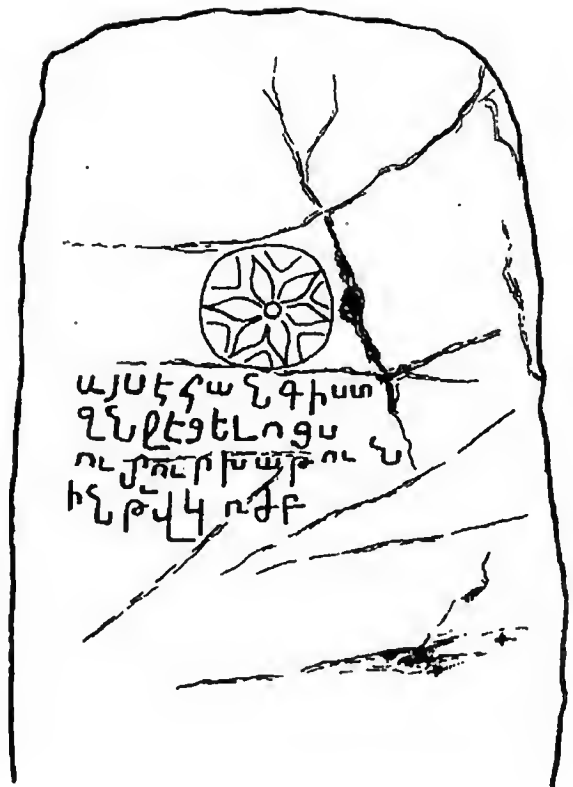 այս է հանգիստ
զնջէցելոցս
ուղուրխաթուն
ին թվկ ռժբ